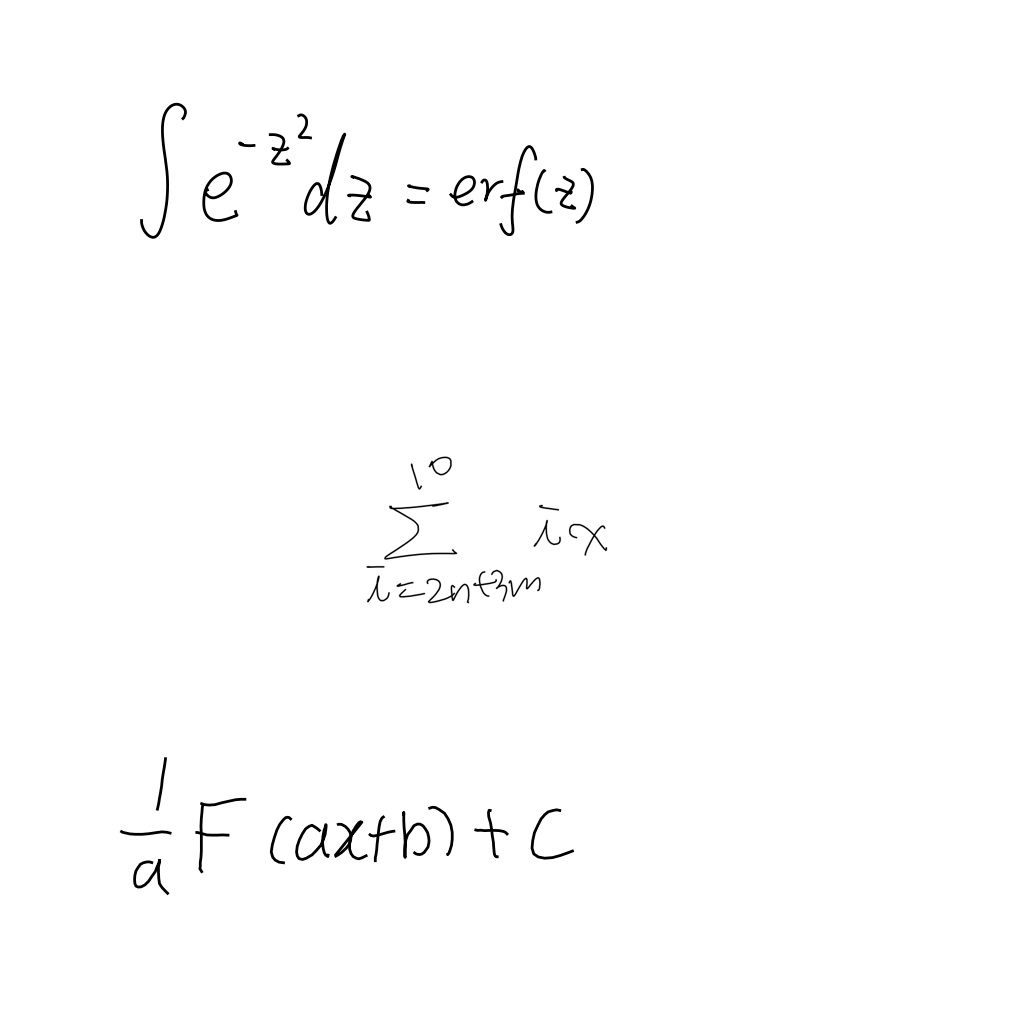 ∫ e^{-z^2} dz = erf(z)
\sum_{i=2n+3m}^{10} ix
\frac{1}{a} F(ax+b)+C